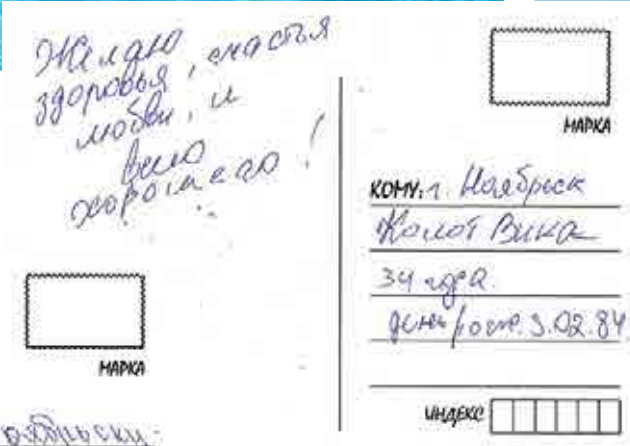 Желаю
здоровья, счастья
любви, и
всего
хорошего!
МАРКА
МАРКА
КОМУ: г. Ноябрьск
Вика
34 года.
день 3.02.84
ИНДЕКС